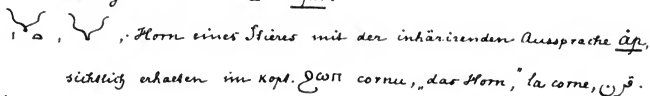 Horn eines Stieres mit der inhärirenden Aussprache ȧp,
sichtlich erhalten im Kopt. cornu, „das Horn," la corne, قرن.